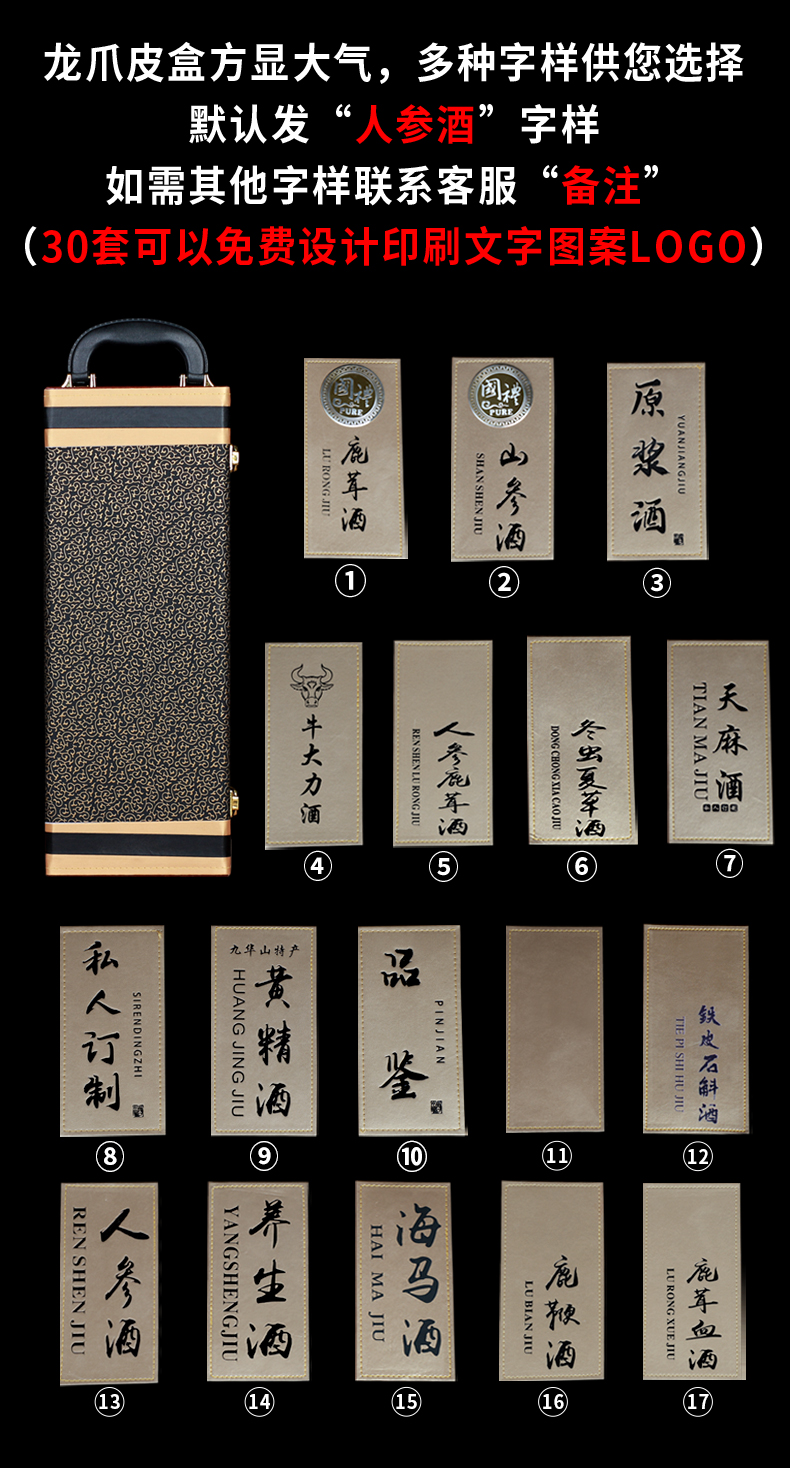 龙爪皮盒方显大气，多种字样供您选择
默认发“人参酒”字样
如需其他字样联系客服“备注”
（30套可以免费设计印刷文字图案LOGO）
國禮
PURE
鹿茸酒
LU RONG JIU
①
國禮
PURE
山参酒
SHAN SHEN JIU
②
原浆酒
YUANJIANGJIU
③
牛大力酒
④
人参鹿茸酒
REN SHEN LU RONG JIU
⑤
冬虫夏草酒
DONG CHONG XIA CAO JIU
⑥
天麻酒
TIAN MA JIU
⑦
私人订制
SIRENDINGZHI
⑧
九华山特产
黄精酒
HUANG JING JIU
⑨
品鉴
PINJIAN
⑩
⑪
铁皮石斛酒
TIE PI SHI HU JIU
⑫
人参酒
REN SHEN JIU
⑬
养生酒
YANGSHENGJIU
⑭
海马酒
HAI MA JIU
⑮
鹿鞭酒
LU BIAN JIU
⑯
鹿茸血酒
LU RONG XUE JIU
⑰